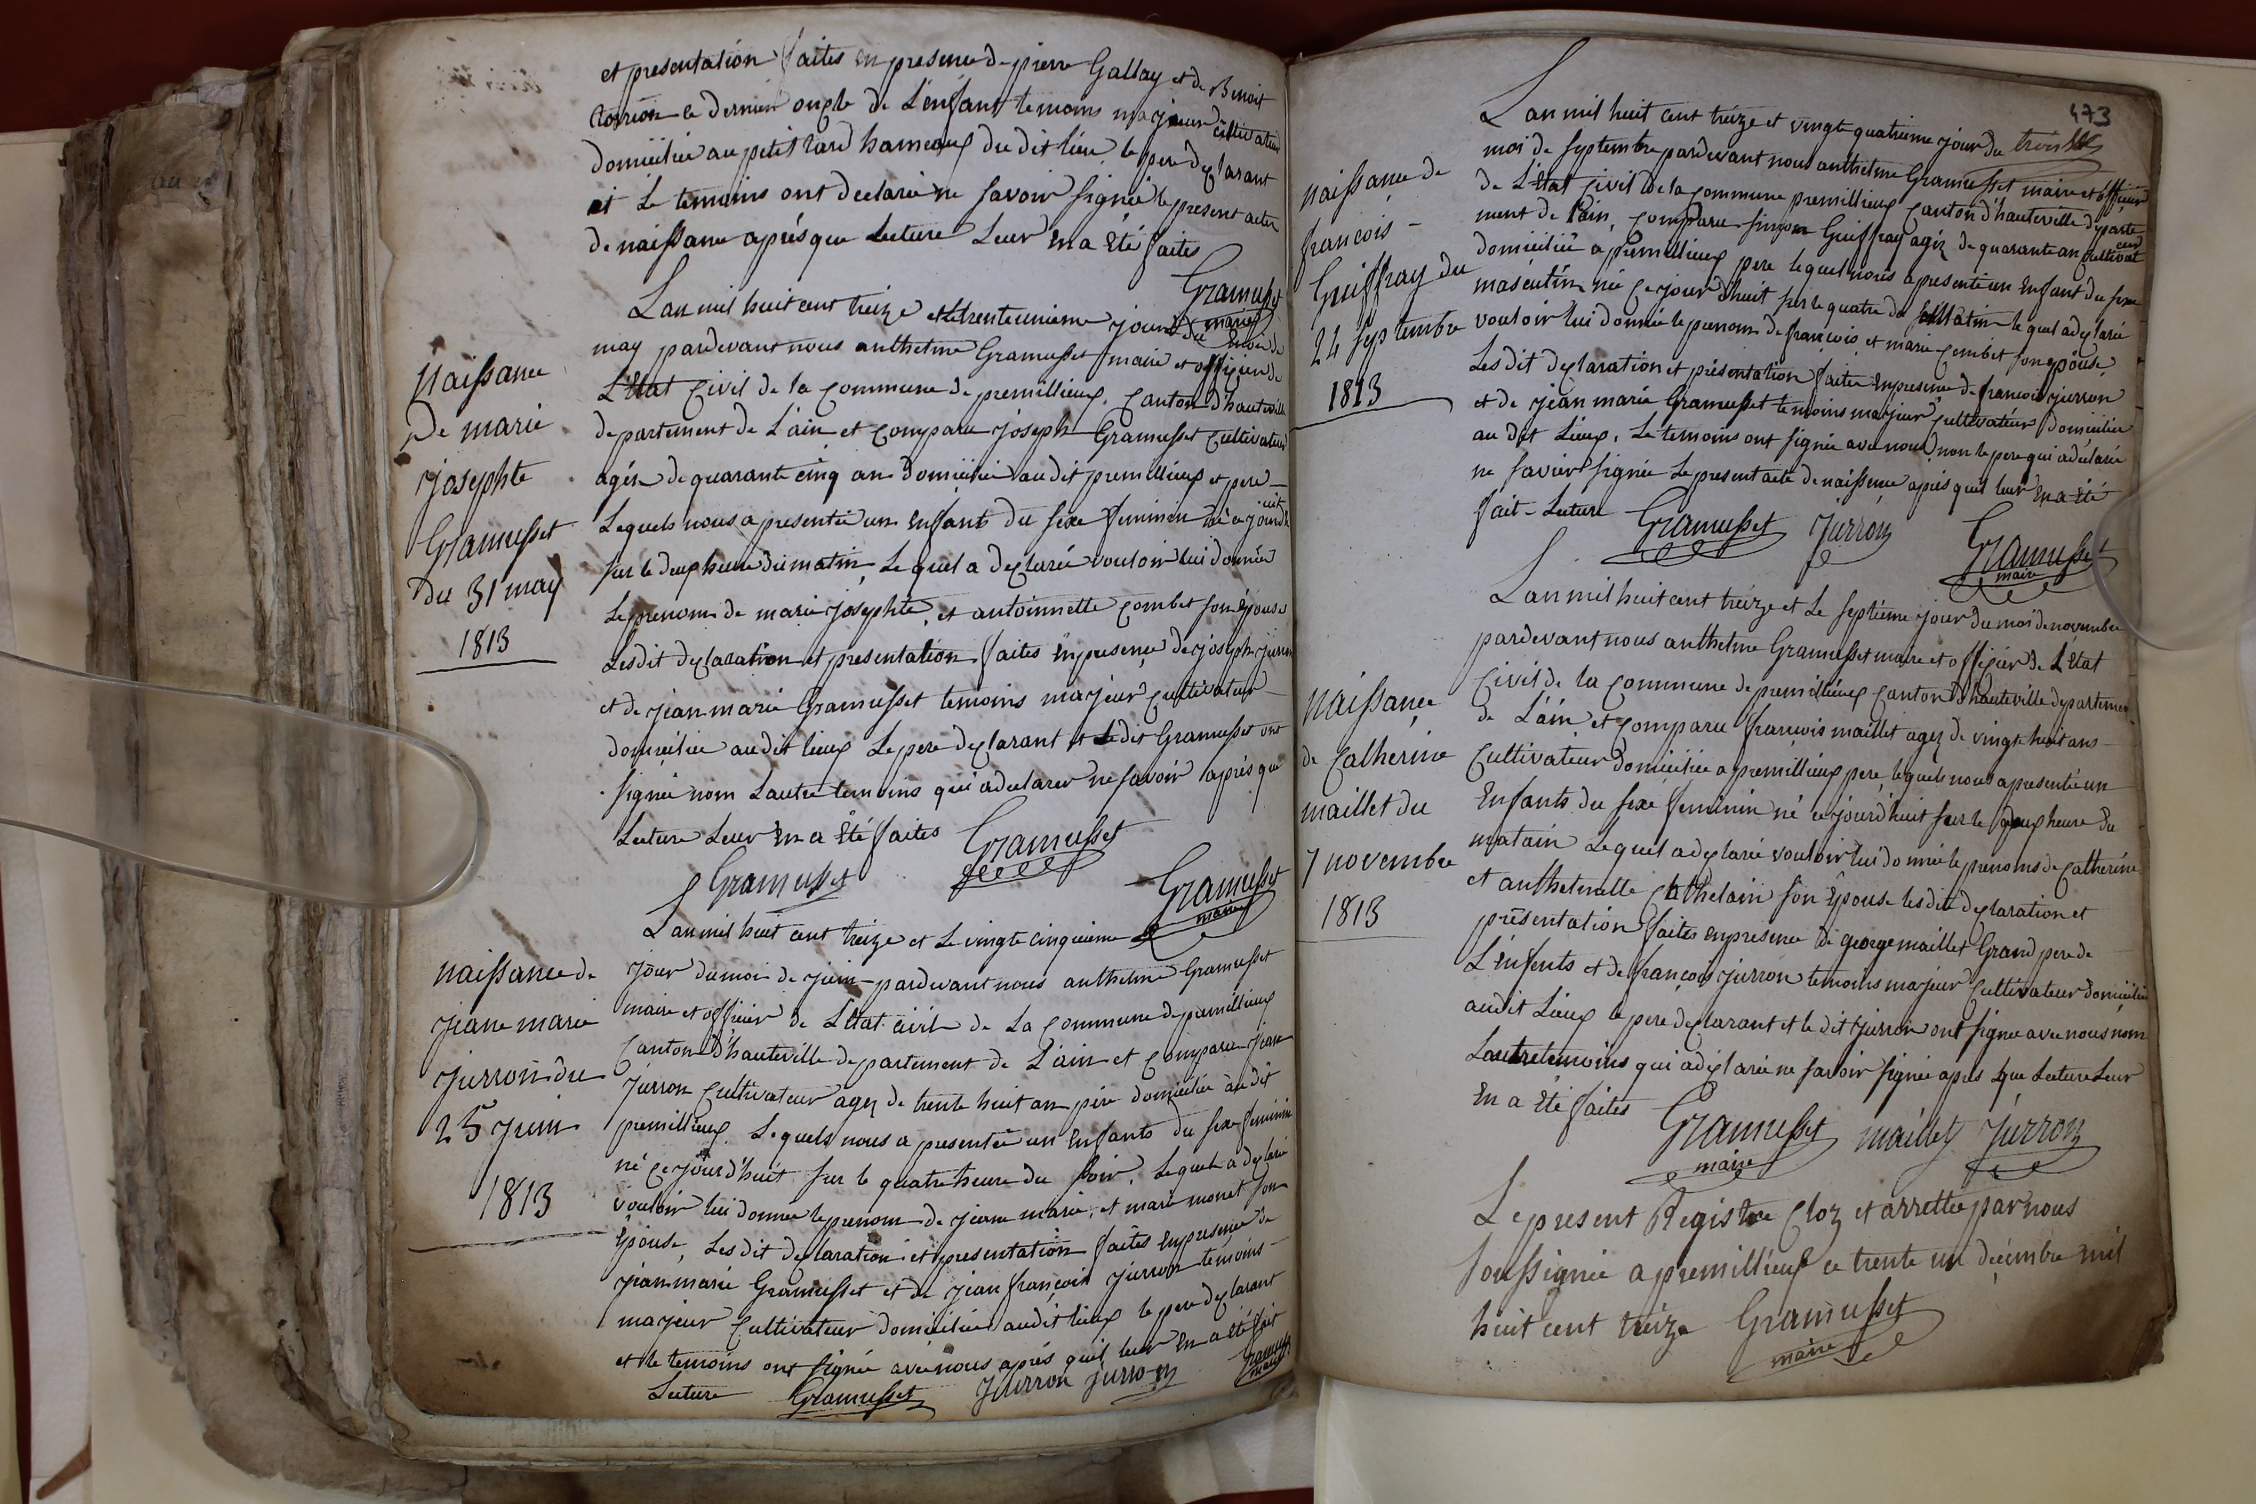 et presentation faites en presence de pierre Gallay et de Benoit
ce dernier oncle de L'enfant temoins majeur cultivateur
domiciliée au petit hameaux du dit lieu le pere declarant
et Le temoins ont declarée ne savoir signée le present acte
de naissance aprés que Lecture Leur en a Eté faites
Gramusset
maire
Naissance
De marie
josephte
Gramusset
du 31 may
1813
Lan mil huit cent treize et le trente unieme jour du mois de
may pardevant nous anthelme Gramusset maire et officier de
L'Etat Civil de la Commune de premillieux, Canton d'hauteville
departement de L'ain et comparu joseph Gramusset Cultivateur
agée de quarante cinq an domiciliée au dit premillieux et pere
Lequels nous a presentée un enfants du sexe feminin né ce jourd'huit
sur le deux heure du matin, Le quel a declarée vouloir lui donnée
Le prenom de marie josephte, et antoinnette combet son épouse
Les dit declaration et presentation faites en presence de joseph jurron
et de jean marie Gramusset temoins majeur cultivateur
domiciliée au dit lieux Le pere declarant et Ledit Gramusset ont
signée nom Lautre temoins qui a declarer ne savoir aprés que
Lecture Leur en a Eté faites Gramusset
Gramusset
Gramusset
maire
naissance de
jeane marie
jurron du
25 juin
1813
Lan mil huit cent treize et Le vingte cinquieme
jour du moi de juin pardevant nous anthelme Gramusset
maire et officier de L'Etat civil de La Commune de premillieux
Canton d'hauteville departement de L'ain et comparu jean
jurron Cultivateur agez de trente huit an pére domiciliée au dit
premillieux. Lequels nous a presentée un enfants du sexe feminin
né ce jourd'huit sur le quatre heure du soir, Le quel a declarée
vouloir lui donnee le prenom de jeane marie, et marie monet son
épouse, Les dit declaration et presentation faites en presence de
jean marie Gramusset et de jean françois jurron temoins
majeur Cultivateur domiciliée au dit lieux le pere declarant
et le temoins ont signée avec nous aprés quil leur en a eté fait
Lecture Gramusset jurron jurron Gramusset
maire
473
naissance de
francois
Guiffray du
24 septembre
1813
Lan mil huit cent treize et vingte quatrieme jour du
moi de septembre pardevant nous anthelme Gramusset maire et officier
de L'Etat civil de la commune premillieux Canton d'hauteville departe
ment de l'ain, comparu simon Guiffray agéz de quarante an cultivateur
domiciliée a premillieux pere lequel nous a presentée un enfant du sexe
masculin né ce jourd'huit sur le quatre du matin le quel a declarée
vouloir lui donnée le prenom de françois et marie combet son epouse,
Les dit declaration et présentation faites en presence de francois jurron
et de jean marie Gramusset temoins majeur, Cultivateurs domiciliée
au dit Lieux, Le temoins ont signée avec nous, non le pere qui a declarée
ne savoir signée Le present acte de naissence aprés quil leur en a été
fait Lecture Gramusset jurron Gramusset
maire
naissance
de Catherine
maillet du
7 novembre
1813
Lan mil huit cent treize et Le septiéme jour du moi de novembre
pardevant nous anthelme Gramusset maire et officier de L'Etat
Civil de la Commune de premillieux Canton d'hauteville departemen
de L'ain et comparu françois maillet agez de vingte huit ans
Cultivateur domiciliée a premillieux pere, lequels nous a presentée un
Enfants du sexe feminin né ce jourd'huit sur le deux heure du
matain Lequel a declarée vouloir lui donnée le prenoms de Catherine
et anthelmette son Epouse les dit declaration et
présentation faites en presence de george maillet Grand pere de
L'enfents et de françois jurron temoins majeur Cultivateur domiciliée
au dit Lieux le pere declarant et le dit jurron ont signée avec nous nom
Lautre temoins qui a declarée ne savoir signée apres que Lecture Leur
en a Eté faites Gramusset maillet jurron
maire
Le present Registre Cloz et arrettée par nous
soussignée a premillieux ce trente un decembre mil
huit cent treize Gramusset
maire